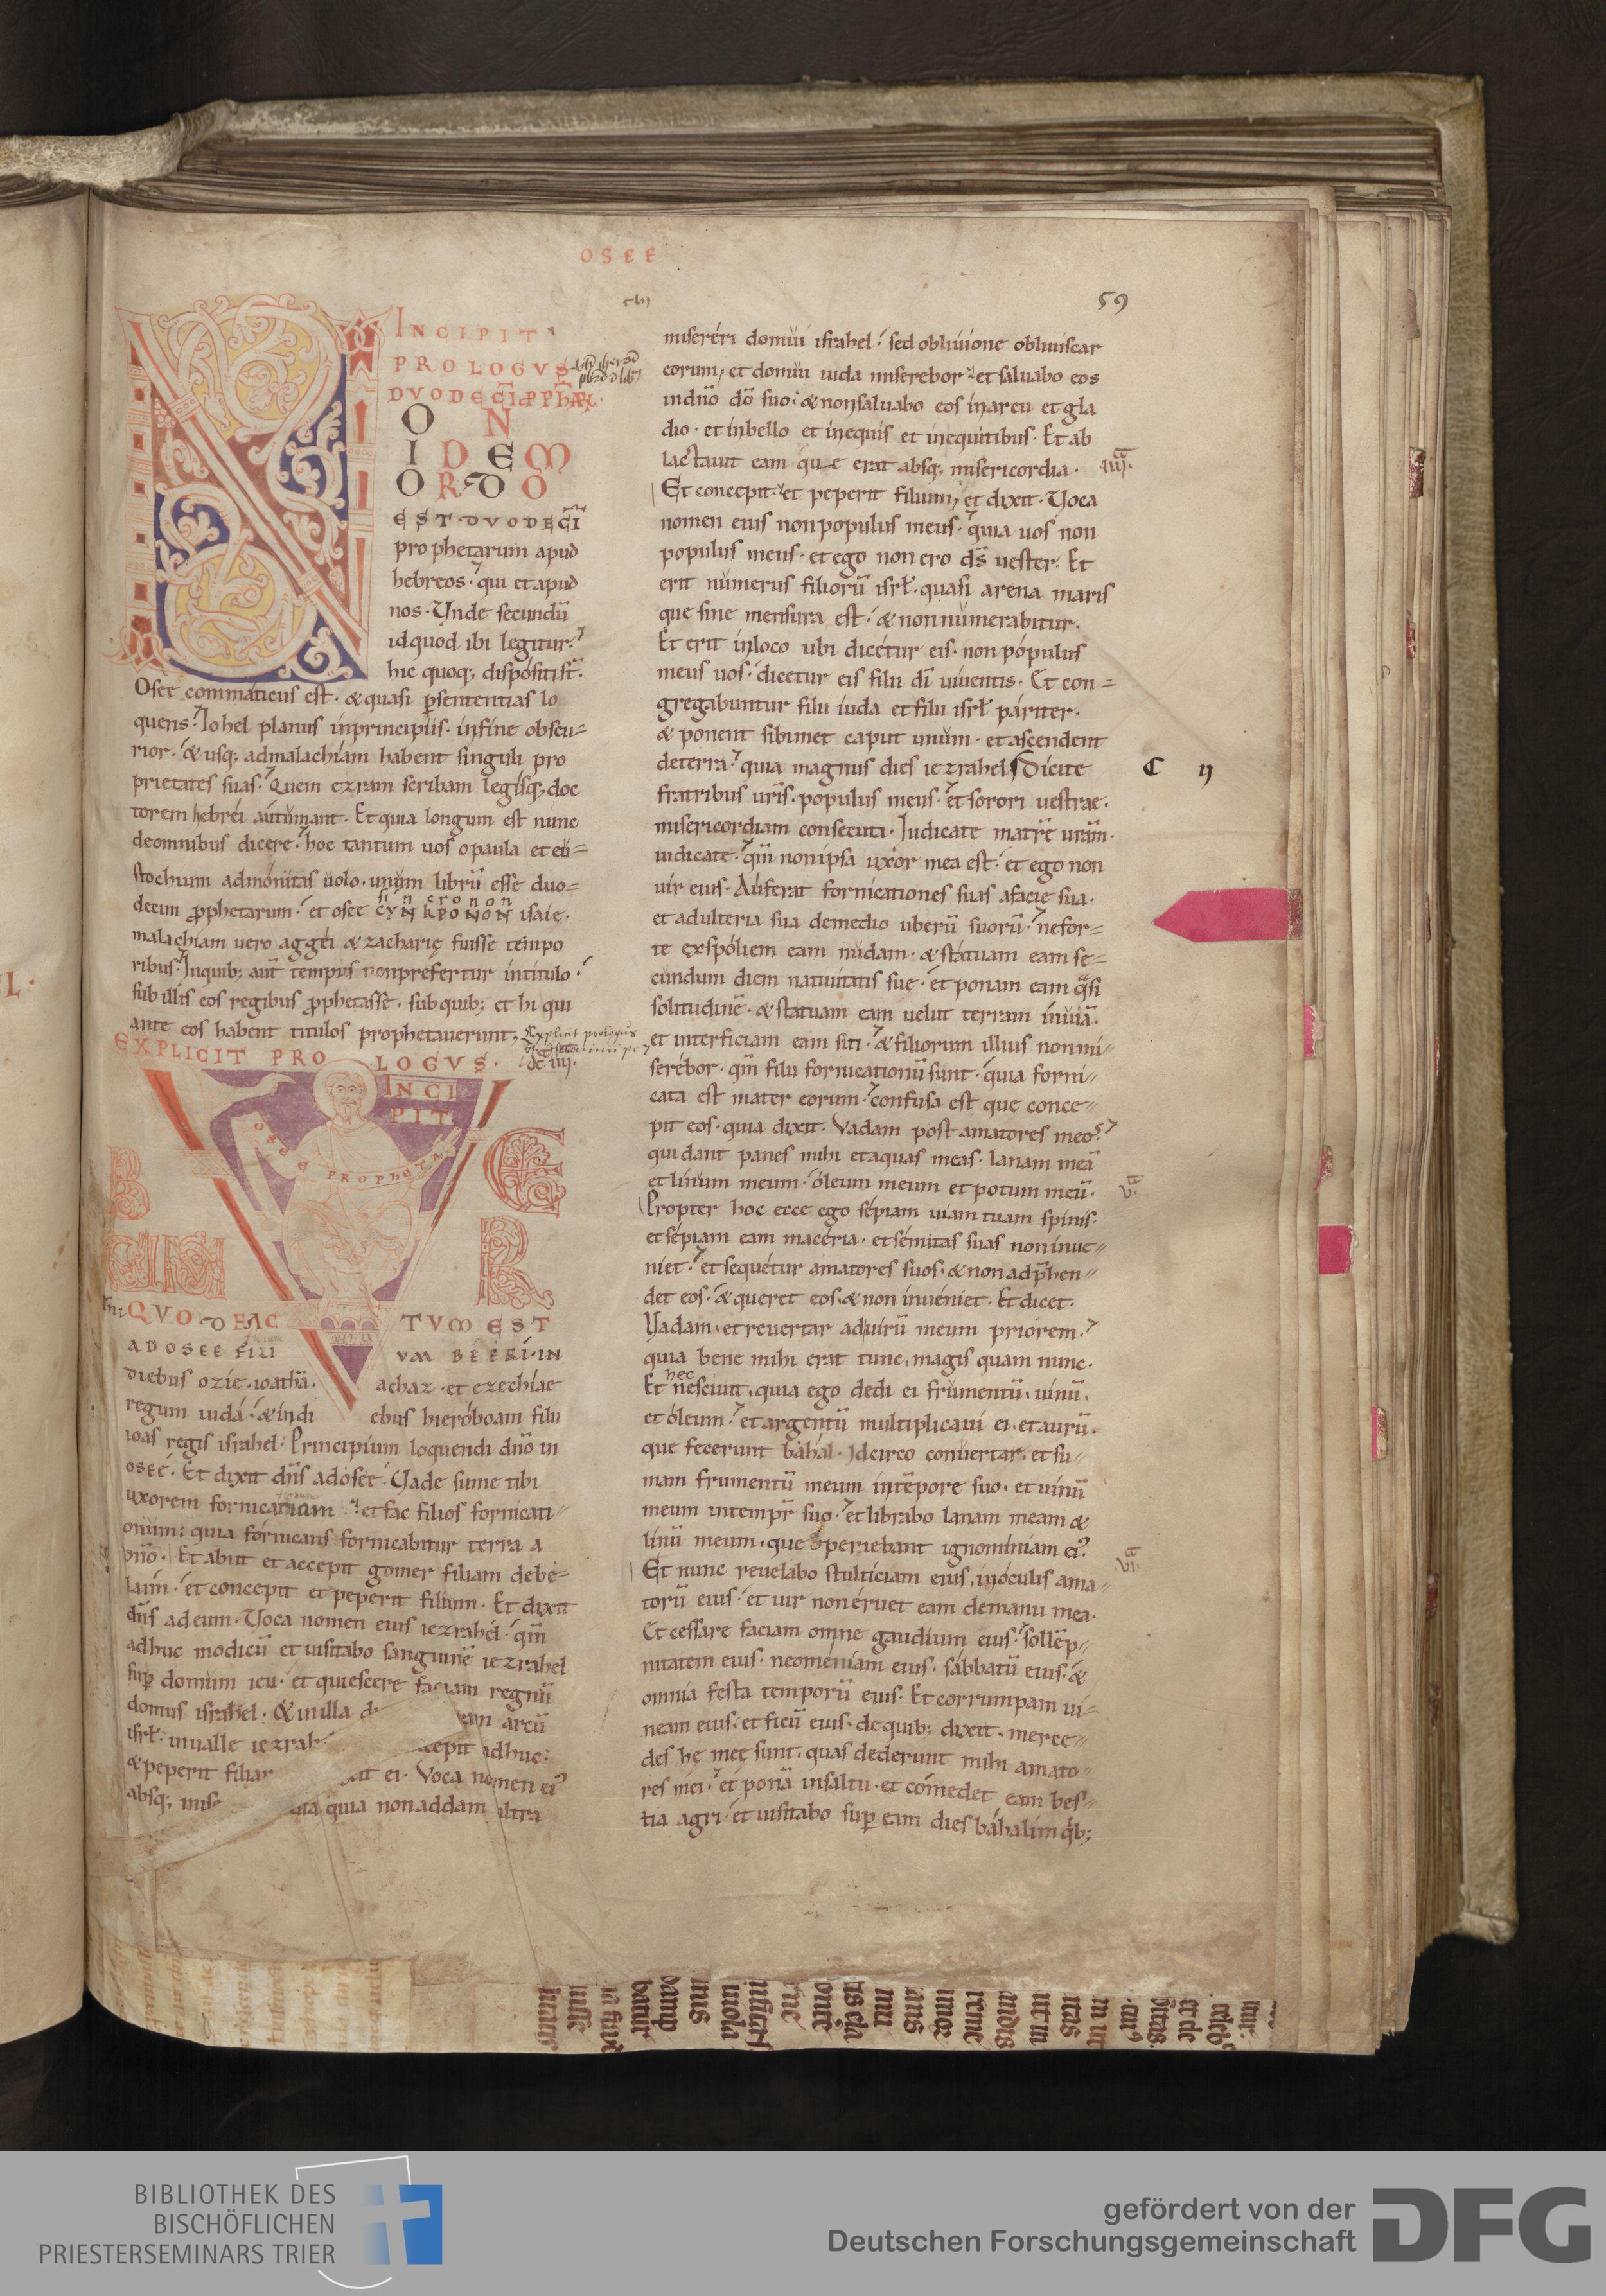 OSEE
59
INCIPIT
PROLOGVS
DVODECĪ PPHAR̄
O N
I D E M
O R D O
EST DVODECĪ
prophetarum apud
hebreos. qui et apud
nos. Vnde secundū
id quod ibi legitur.
hic quoq; dispositi st̄.
Osee commaticus est. & quasi ꝑ sententias lo
quens. Iohel planus in principiis. in fine obscu=
rior. & usq; ad malachiam habent singuli pro
prietates suas. Quem ezram scribam legisq; doc
torem hebrei autumant. Et quia longum est nunc
de omnibus dicere. hoc tantum uos o paula et eu=
stochium admonitas uolo. unum librū esse duo=
si n cronon
decim prophetarum. et osee CYN KPONON isaie.
malachiam uero aggei & zacharię fuisse tempo
ribus. Inquib; aut̄ tempus non prefertur in titulo.
sub illis eos regibus prophetasse. sub quib; et hi qui
ante eos habent titulos prophetauerunt.
Explicit prologus
EXPLICIT PROLOGVS.
INCI
PIT
OSEE PROPHETA
VERBUM
QVOD FACTVM EST
AD OSEE FILIVM BEERI. IN
diebus ozie. ioathā. achaz. et ezechiae
regum iuda. & in diebus hieroboam filii
ioas regis israhel. Principium loquendi dn̄o in
osee. Et dixit dn̄s ad osee. Vade sume tibi
uxorem fornicationum. et fac filios fornicati=
onum. quia fornicans fornicabitur terra a
dn̄o. Et abiit et accepit gomer filiam debe=
laim. et concepit et peperit filium. Et dixit
dn̄s ad eum. Voca nomen eius iezrahel. qm̄
adhuc modicū et uisitabo sanguinē iezrahel
suꝑ domum ieu. et quiescere faciam regnū
domus israhel. & in illa d am arcū
isrl̄. in ualle iezrah cepit adhuc.
& peperit filiam it ei. Voca nomen ei'
absq; mise dia quia non addam ultra
misereri domui israhel. sed obliuione obliuiscar
eorum, et domui iuda miserebor. et saluabo eos
in dn̄o dō suo. & non saluabo eos in arcu et gla
dio. et in bello et in equis et in equitibus. Et ab
lactauit eam que erat absq; misericordia.
Et concepit. et peperit filium, et dixit. Voca
nomen eius non populus meus. quia uos non
populus meus. et ego non ero ds̄ uester. Et
erit numerus filiorū isrl̄. quasi arena maris
que sine mensura est. & non numerabitur.
Et erit in loco ubi dicetur eis. non populus
meus uos. dicetur eis filii dī uiuentis. Et con=
gregabuntur filii iuda et filii isrl̄ pariter.
& ponent sibimet caput unum. et ascendent
de terra. quia magnus dies iezrahel. Dicite
C ij
fratribus uris̄. populus meus. et sorori uestrae.
misericordiam consecuta. Iudicate matrē uram̄.
iudicate. qm̄ non ipsa uxor mea est. et ego non
uir eius. Auferat fornicationes suas a facie sua.
et adulteria sua de medio uberū suorū. ne for=
te exspoliem eam nudam. & statuam eam se=
cundum diem natiuitatis sue. et ponam eam qͣsi
solitudinē. & statuam eam uelut terram inuiā.
et interficiam eam siti. & filiorum illius non mi=
serebor. qm̄ filii fornicationū sunt. quia forni=
cata est mater eorum. confusa est que conce=
pit eos. quia dixit. Vadam post amatores meos.
qui dant panes mihi et aquas meas. lanam meā
et linum meum. oleum meum et potum meū.
Propter hoc ecce ego sepiam uiam tuam spinis.
et sepiam eam maceria. et semitas suas non inue=
niet. et sequetur amatores suos. & non adp̄hen=
det eos. & queret eos. & non inueniet. Et dicet.
Vadam. et reuertar ad uirū meum priorem.
quia bene mihi erat tunc. magis quam nunc.
Et hec nesciuit. quia ego dedi ei frumentū. uinū.
et oleum. et argentū multiplicaui ei. et aurū.
que fecerunt bahal. Idcirco conuertar. et su=
mam frumentū meum in tēpore suo. et uinū
meum in temp̄r suo. et librabo lanam meam &
linū meum. que operiebant ignominiam ei'.
Et nunc reuelabo stulticiam eius. in oculis ama=
torū eius. et uir non eruet eam de manu mea.
Et cessare faciam omne gaudium eius. sollēp=
nitatem eius. neomeniam eius. sabbatū eius. &
omnia festa temporū eius. Et corrumpam ui=
neam eius. et ficū eius. de quib; dixit. merce=
des hę meę sunt. quas dederunt mihi amato=
res mei. et ponā in saltu. et comedet eam bes=
tia agri. et uisitabo suꝑ eam dies bahalim qͥb;
BIBLIOTHEK DES
BISCHÖFLICHEN
PRIESTERSEMINARS TRIER
gefördert von der
Deutschen Forschungsgemeinschaft
DFG